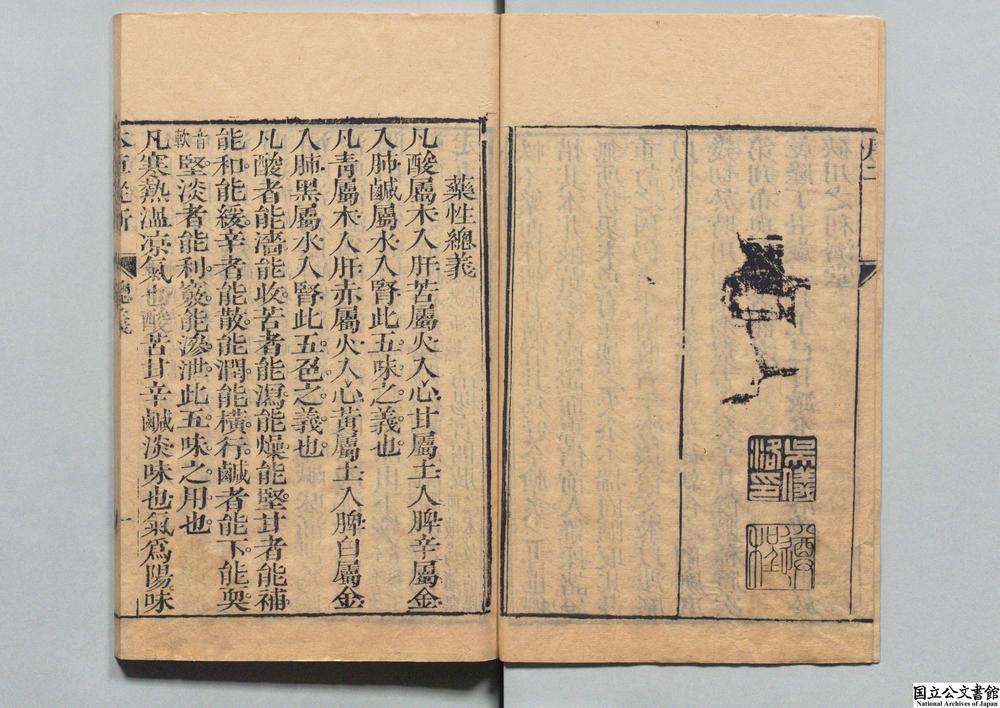 藥性總義
凡酸屬木入肝苦屬火入心甘屬土入脾辛屬金
入肺鹹屬水入腎此五味之義也
凡青屬木入肝赤屬火入心黃屬土入脾白屬金
入肺黑屬水入腎此五色之義也
凡酸者能濇能收苦者能瀉能燥能堅甘者能補
能和能緩辛者能散能潤能橫行鹹者能下能耎
音軟堅淡者能利竅能滲泄此五味之用也
凡寒熱溫凉氣也酸苦甘辛鹹淡味也氣爲陽味
總義 一
国立公文書館
National Archives of Japan